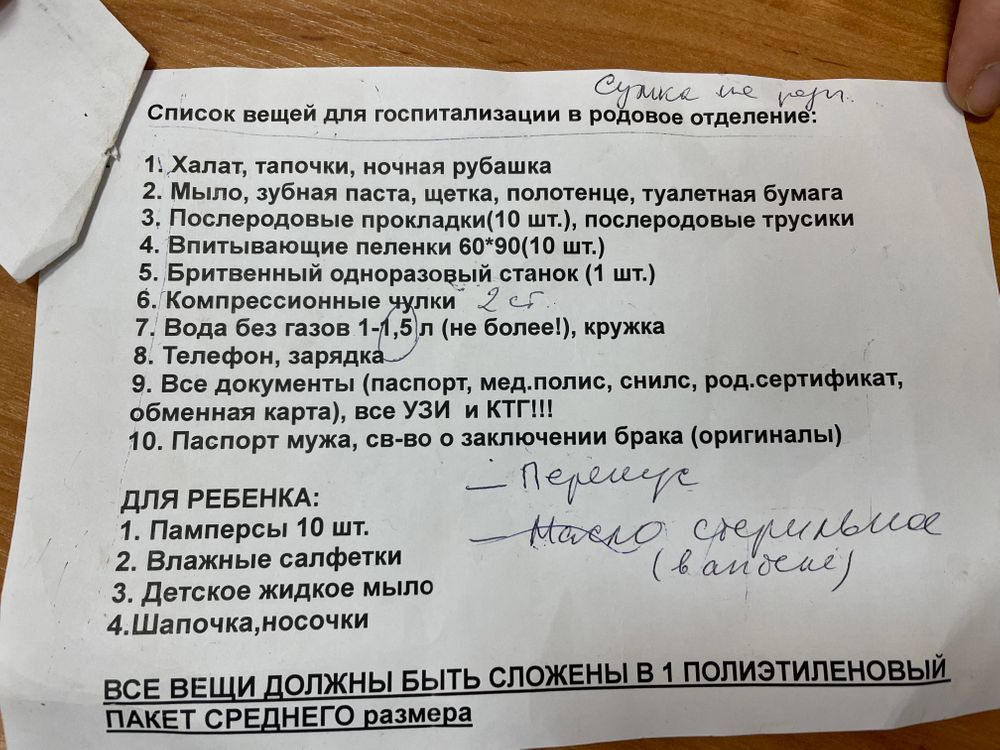 Сумка на роды.
Список вещей для госпитализации в родовое отделение:
1. Халат, тапочки, ночная рубашка
2. Мыло, зубная паста, щетка, полотенце, туалетная бумага
3. Послеродовые прокладки(10 шт.), послеродовые трусики
4. Впитывающие пеленки 60*90(10 шт.)
5. Бритвенный одноразовый станок (1 шт.)
6. Компрессионные чулки 2 ст.
7. Вода без газов 1-1,5 л (не более!), кружка
8. Телефон, зарядка
9. Все документы (паспорт, мед.полис, снилс, род.сертификат,
обменная карта), все УЗИ и КТГ!!!
10. Паспорт мужа, св-во о заключении брака (оригиналы)
— Перекус
— Масло стерильное
(в аптеке)
ДЛЯ РЕБЕНКА:
1. Памперсы 10 шт.
2. Влажные салфетки
3. Детское жидкое мыло
4.Шапочка,носочки
ВСЕ ВЕЩИ ДОЛЖНЫ БЫТЬ СЛОЖЕНЫ В 1 ПОЛИЭТИЛЕНОВЫЙ
ПАКЕТ СРЕДНЕГО размера